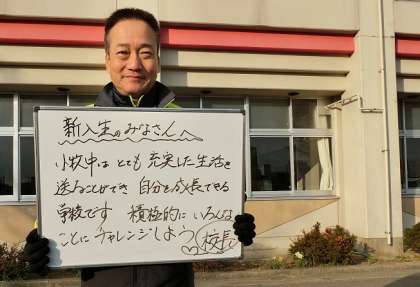 新入生のみなさんへ
小牧中は とても 充実した生活を
送ることができ 自分を成長できる
学校です 積極的に いろんな
ことに チャレンジしよう 校長